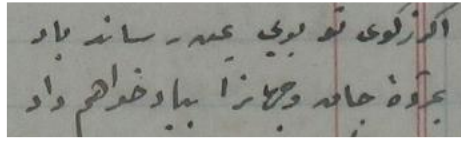 اکر زکوی تو بوی بمن رساند باد
بمژدهٔ جان وجهانرا بباد خواهم داد